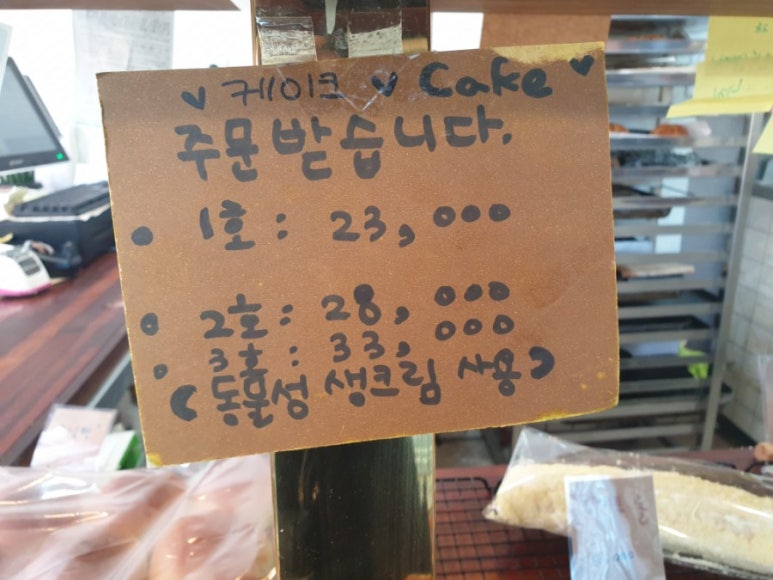 ♥ 케이크 ♥ Cake ♥
주문받습니다.
• 1호 : 23,000
• 2호 : 28,000
• 3호 : 33,000
(동물성 생크림 사용)